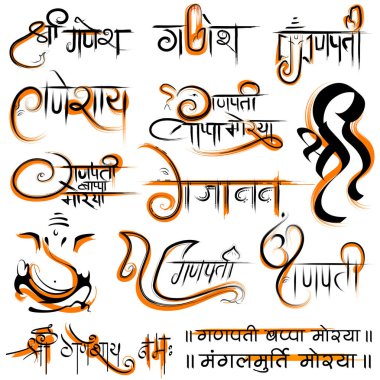 श्री गणेश
गणेश
गणपती
गणेशाय
गणपती
बाप्पा मोरया
श्री
गणपती
बाप्पा
मोरया
गजानन
गणपती
गणपती
श्री गणेशाय नमः
॥ गणपती बप्पा मोरया ॥
॥ मंगलमुर्ति मोरया ॥